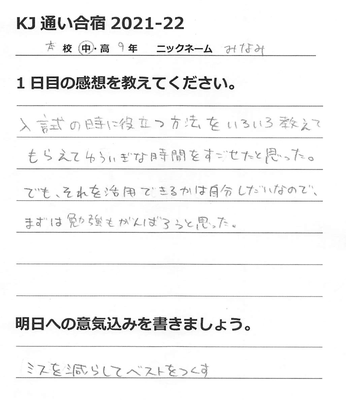 KJ 通い合宿 2021-22
本 校 中・高 9 年　ニックネーム　みなみ
1日目の感想を教えてください。
入試の時に役立つ方法をいろいろ教えて
もらえてゆういぎな時間をすごせたと思った。
でも、それを活用できるかは自分しだいなので、
まずは勉強もがんばろうと思った。
明日への意気込みを書きましょう。
ミスを減らしてベストをつくす